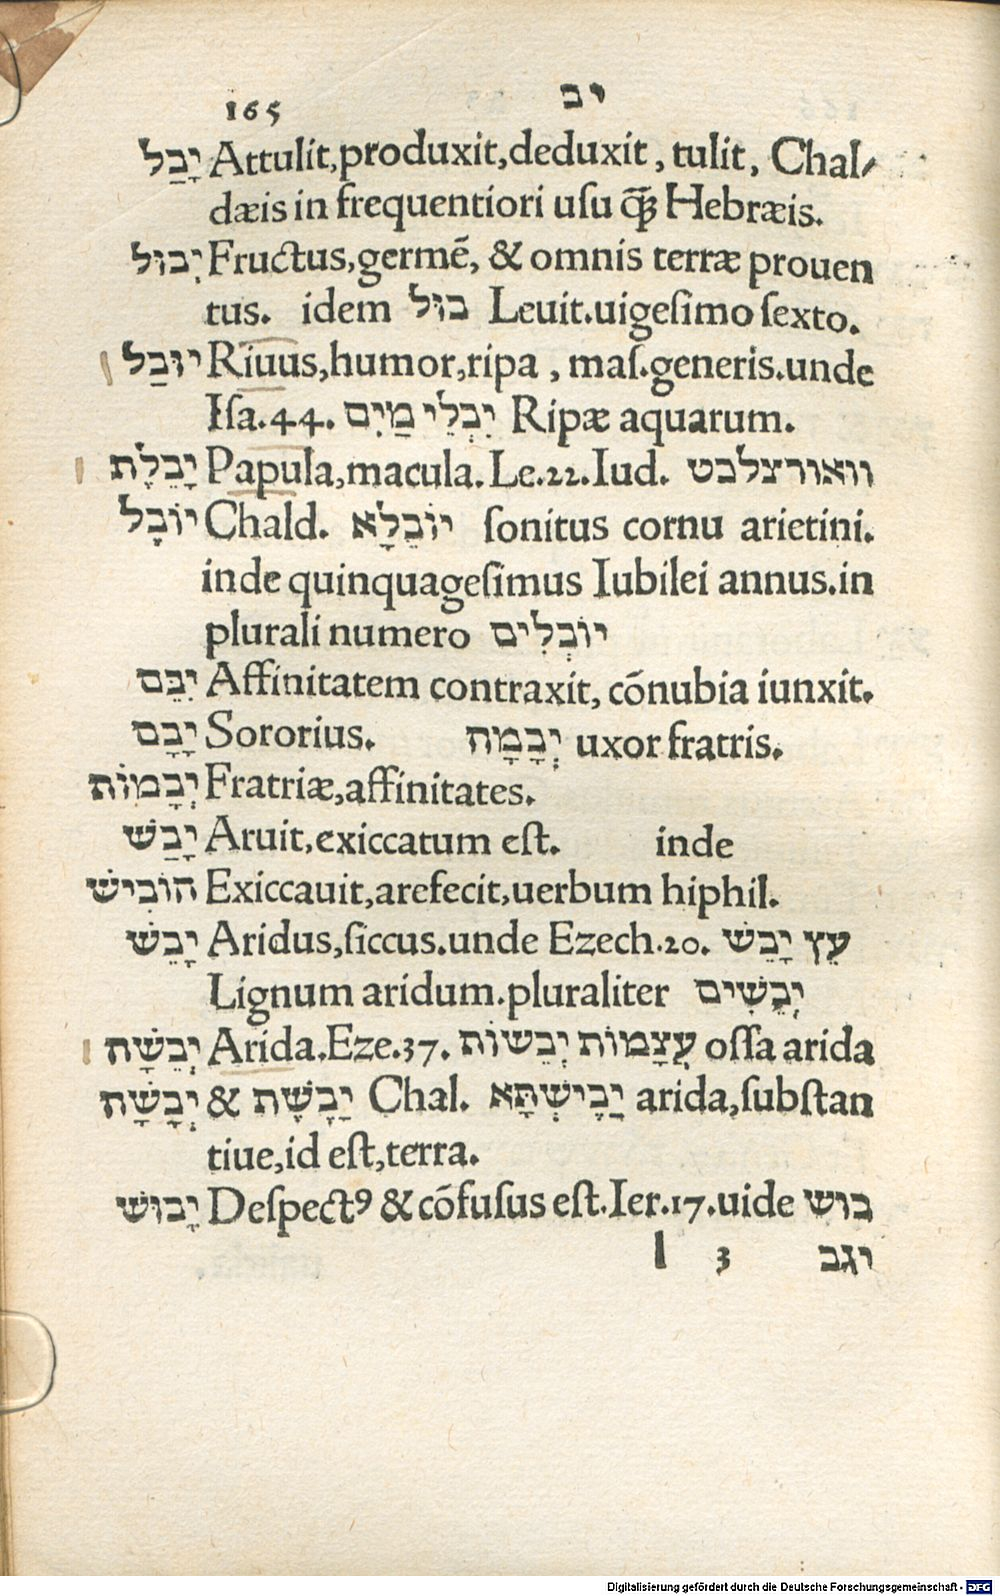 165 יב
יָבַל Attulit,produxit,deduxit, tulit, Chal/
dæis in frequentiori uſu ꝙ̃ Hebræis.
יְבוּל Fructus,germẽ, & omnis terræ prouen
tus. idem בוּל Leuit.uigeſimo ſexto.
יוּבַל Riuus,humor,ripa, maſ.generis.unde
Iſa.44. יִבְלֵי מַיִם Ripæ aquarum.
יָבֵלֶת Papula,macula.Le.22.Iud. וואורצלבט
יוֹבֵל Chald. יוֹבֵלָא ſonitus cornu arietini.
inde quinquageſimus Iubilei annus.in
plurali numero יוֹבְלִים
יִבֵּם Affinitatem contraxit, cõnubia iunxit.
יָבָם Sororius. יְבָמָה uxor fratris.
יְבָמוֹת Fratriæ,affinitates.
יָבַשׁ Aruit,exiccatum eſt. inde
הוֹבִישׁ Exiccauit,arefecit,uerbum hiphil.
יָבֵשׁ Aridus,ſiccus.unde Ezech.20. עֵץ יָבֵשׁ
Lignum aridum.pluraliter יְבֵשִׁים
יְבֵשָׁה Arida.Eze.37. עֲצָמוֹת יְבֵשׁוֹת oſſa arida
יְבָשָׁה & יַבֶּשֶׁת Chal. יַבֶּישְׁתָּא arida,ſubſtan
tiue,id eſt,terra.
יָבוּשׁ Deſpectꝰ & cõfuſus eſt.Ier.17.uide בוש
l 3 יגב
Digitalisierung gefördert durch die Deutsche Forschungsgemeinschaft - DFG